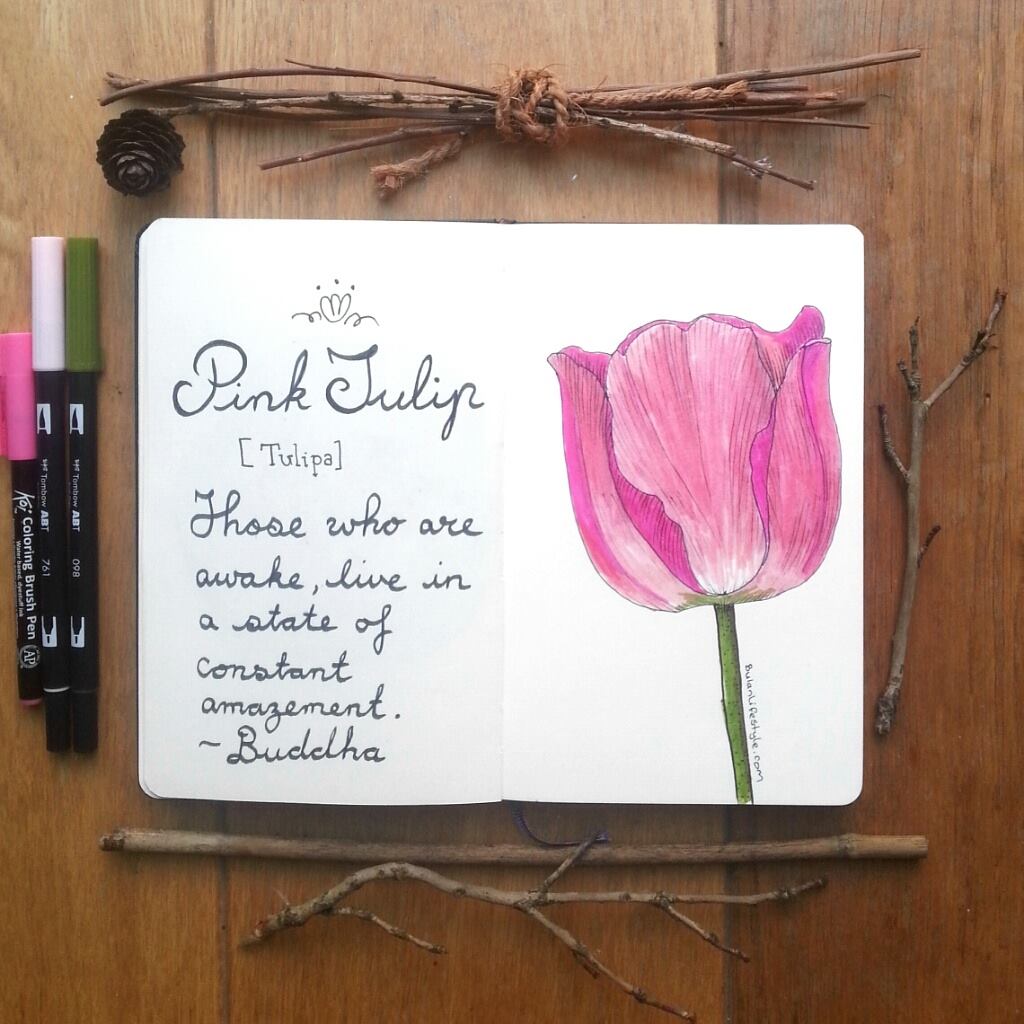 Pink Tulip
[Tulipa]
Those who are
awake, live in
a state of
constant
amazement.
~Buddha
BulanLifestyle.com
Koi Coloring Brush Pen
Water based, dyestuff ink
AP
Tombow ABT 761
Tombow ABT 098